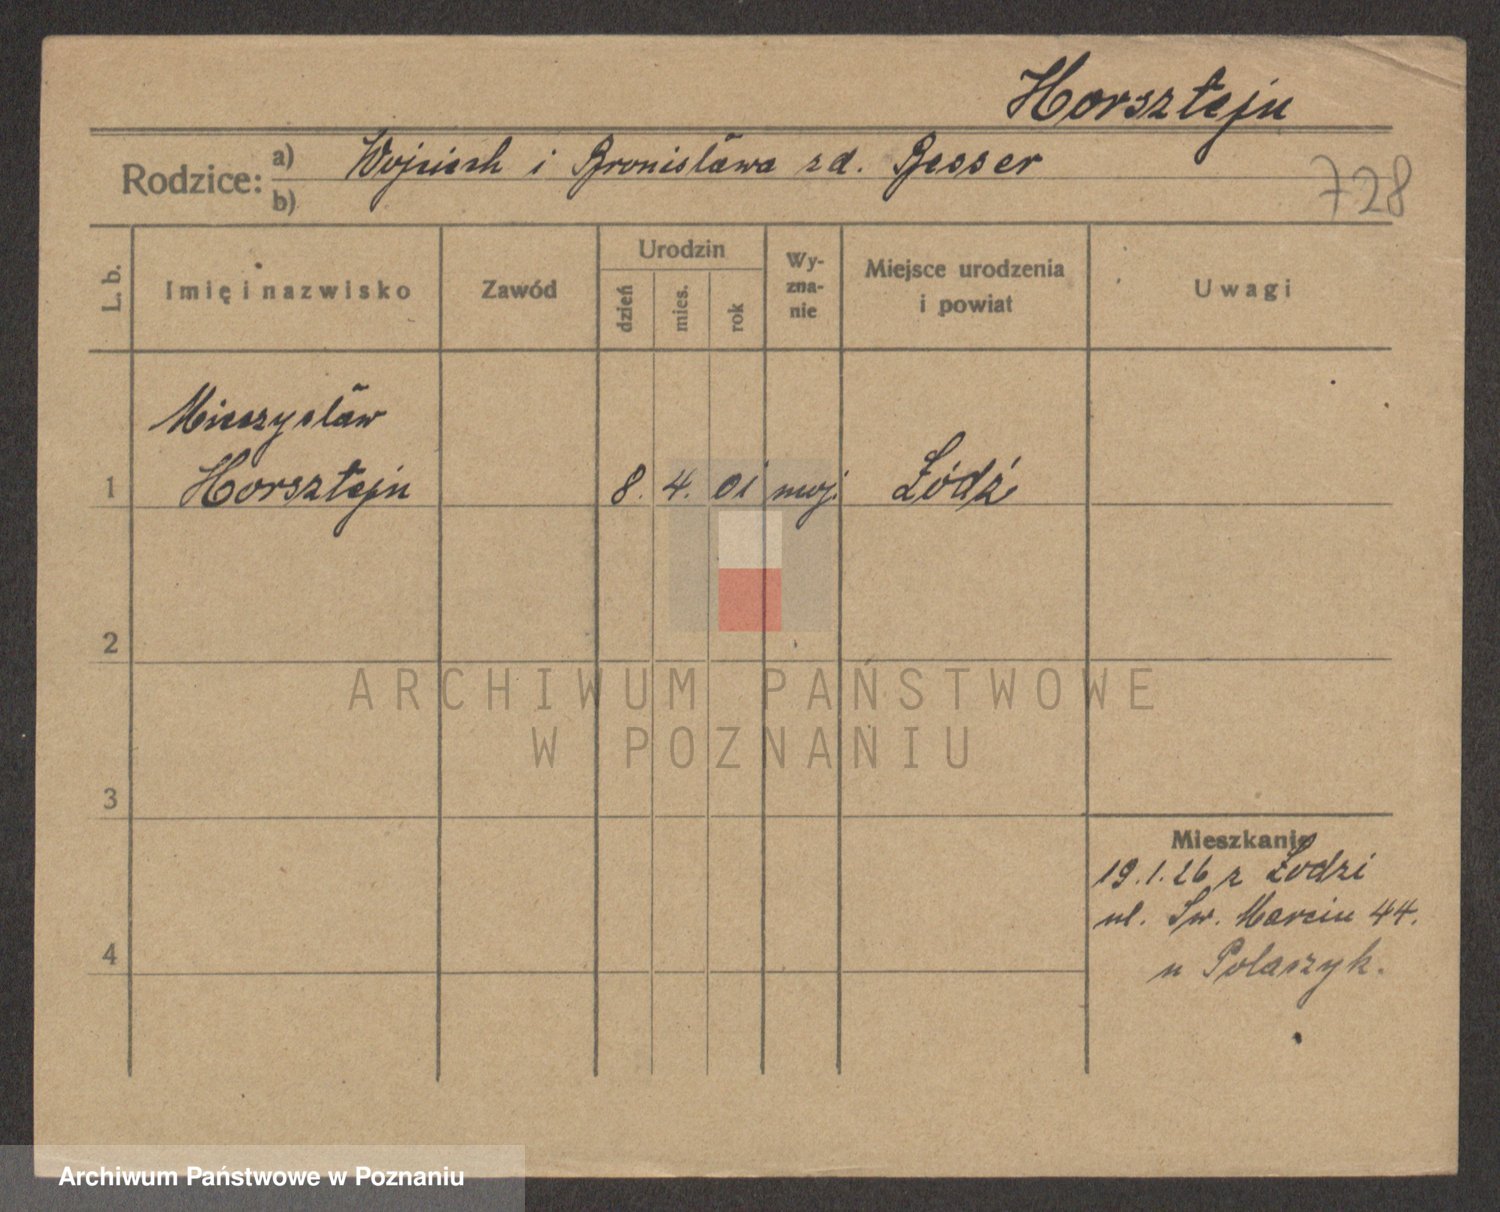 Horsztejn
Rodzice: a) Wojciech i Bronisława zd. Besser
b)
728
L. b.
Imię i nazwisko
Zawód
Urodzin
dzień
mies.
rok
Wy-
zna-
nie
Miejsce urodzenia
i powiat
Uwagi
Mieczysław
1 Horsztejn 8. 4. 01 moj. Łódź
2
3
4
Mieszkanie
19.1.26 z Łodzi
ul. Św. Marcin 44.
u Polaszyk.
ARCHIWUM PAŃSTWOWE
W POZNANIU
Archiwum Państwowe w Poznaniu